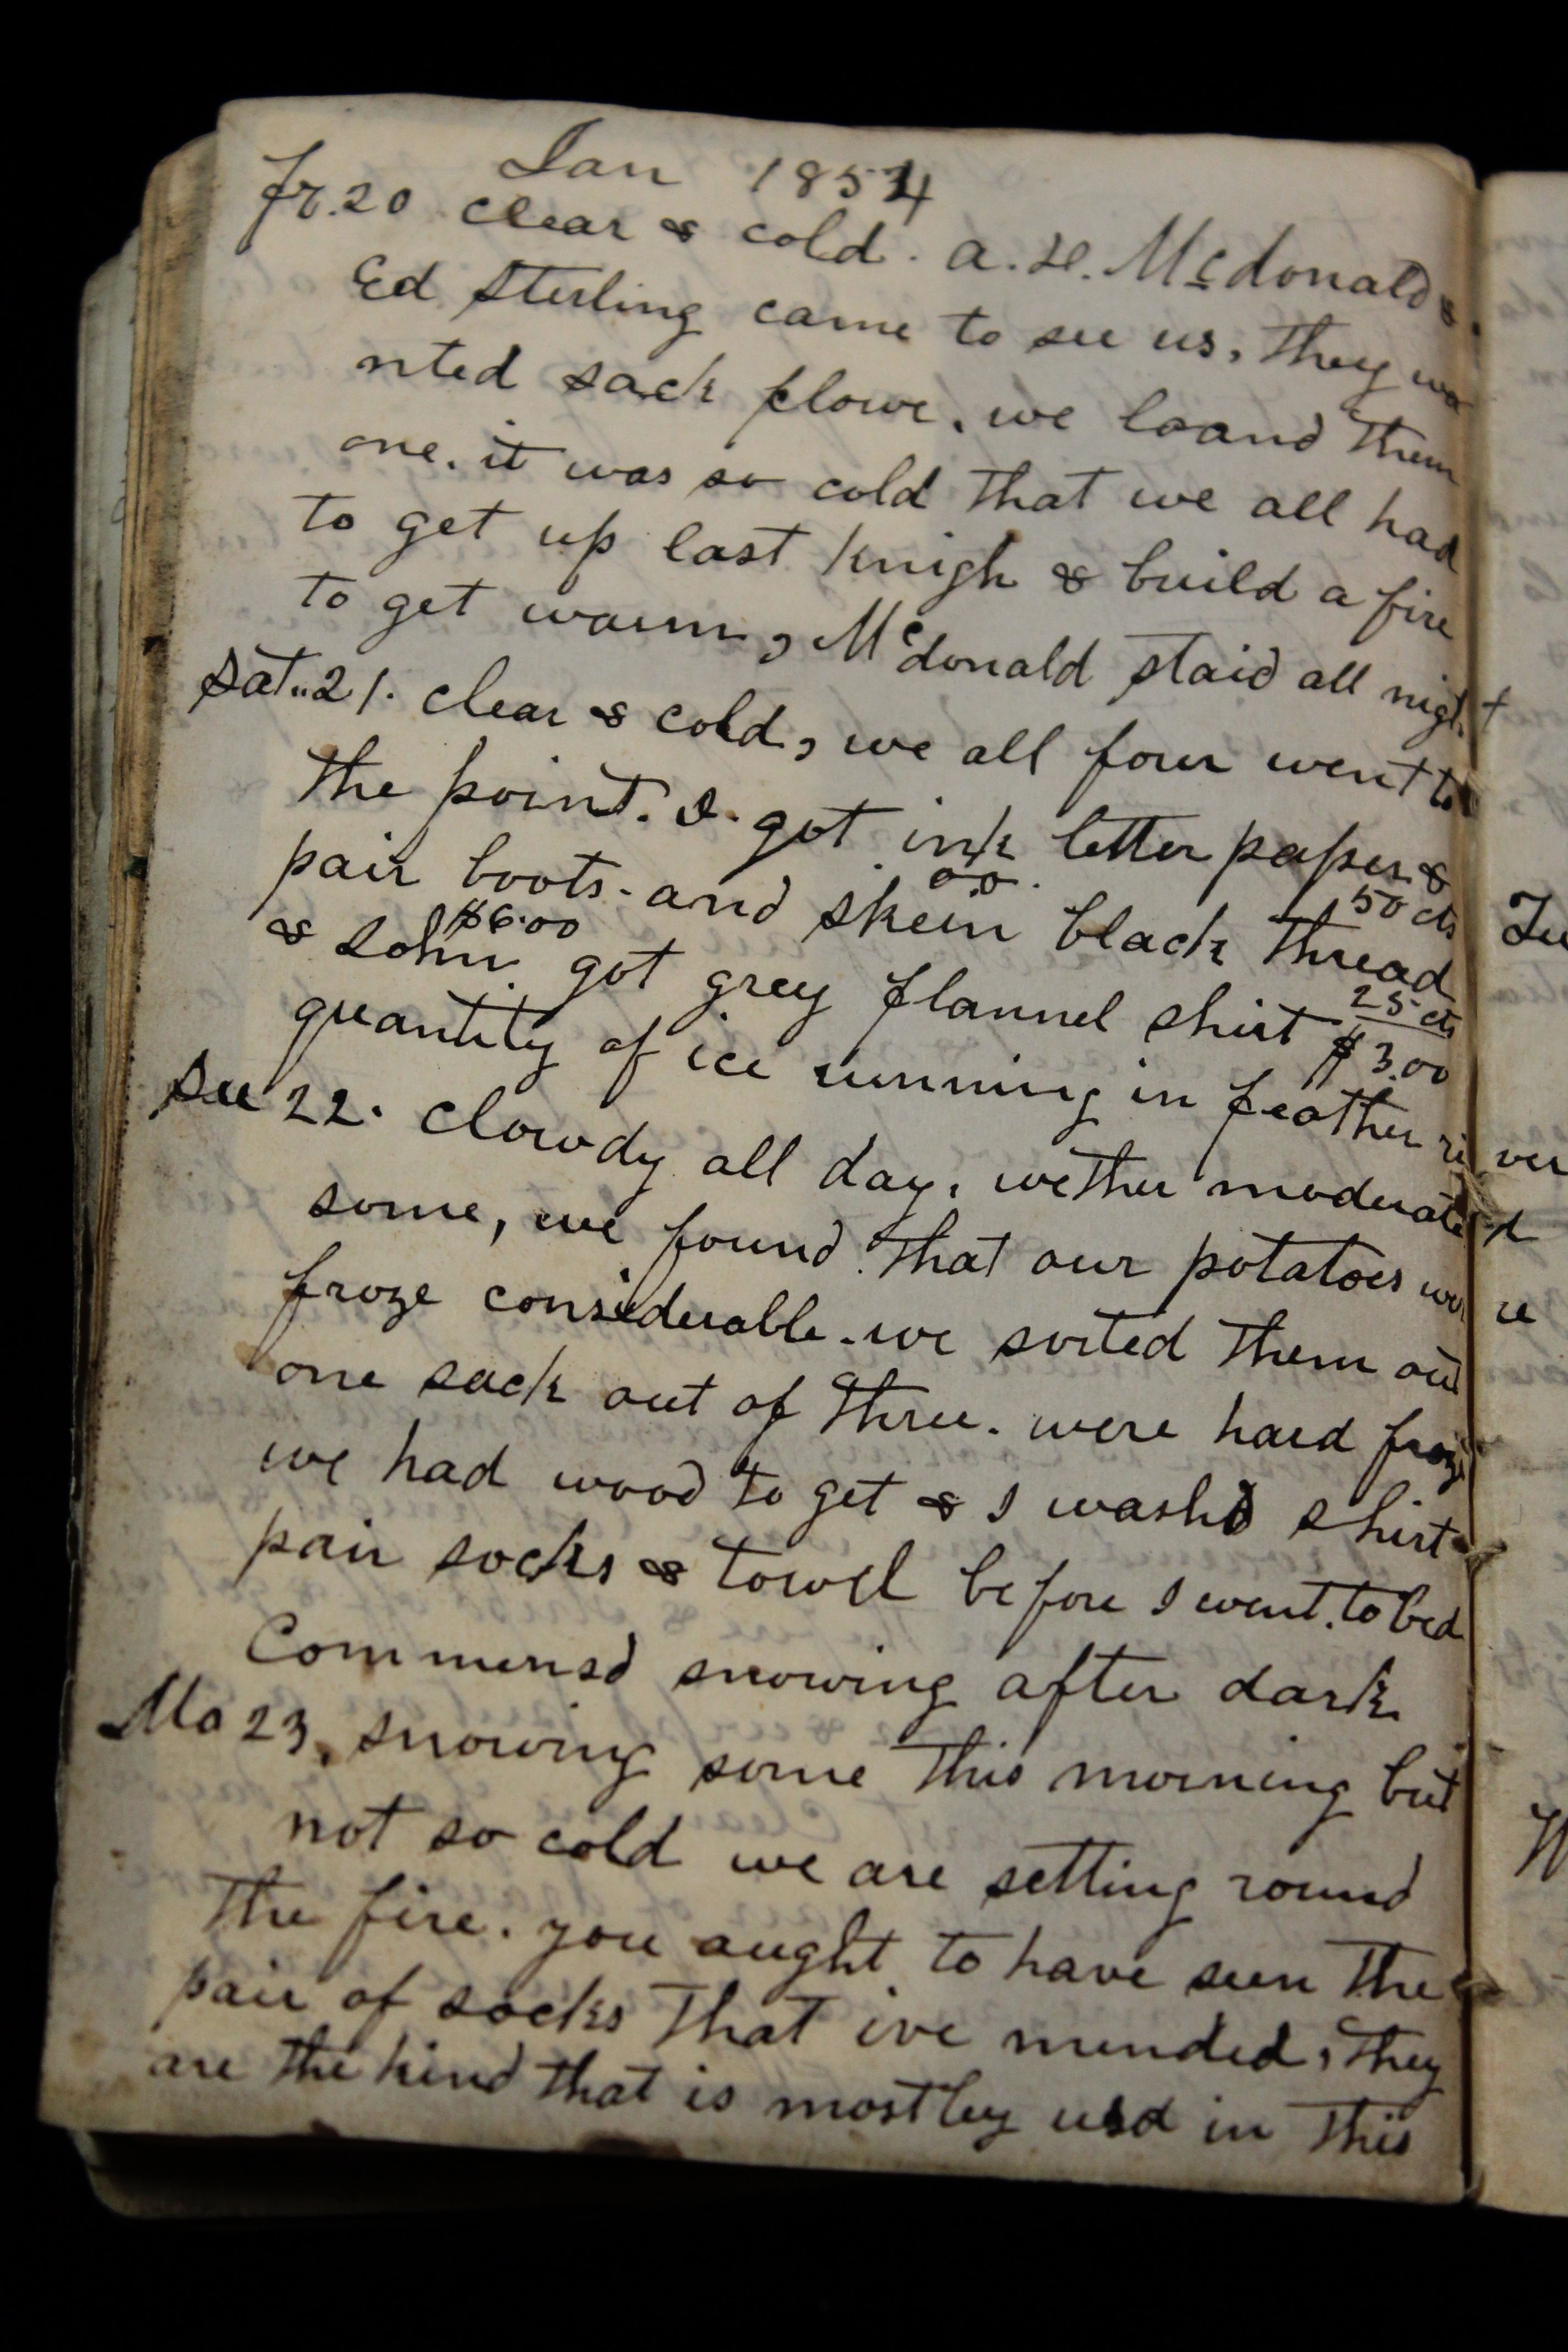 Jan 1854
fr. 20 clear & cold. a. H. Mcdonald &
Ed Sterling came to see us, they wa
nted sack flowr, we loand them
one. it was so cold that we all had
to get up last knigh & build a fire
to get warm, Mcdonald staid all night
Sat. 21. clear & cold, we all four went to
the point. I. got ink letter paper &
00. 50 cts
pair boots - and skein black thread
$6.00 25 cts
& John got grey flannel shirt $3.00
quantity of ice running in feather river
Su 22. Clowdy all day, wether moderated
some, we found that our potatoes were
froze considerable - we sorted them out
one sack out of three. were hard froze
we had wood to get & I washd shirt
pair socks & towel before I went to bed
Commensd snowing after dark.
Mo 23, snowing some this morning but
not so cold we are setting round
the fire. you aught to have seen the
pair of socks that ive mended, they
are the kind that is mostley usd in this